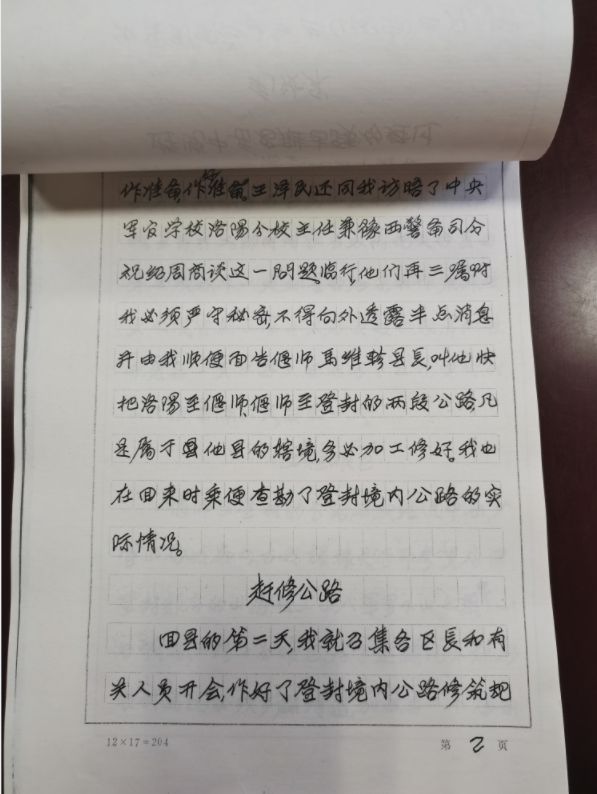 作准备,作准备。王泽民还同我访晤了中央
军官学校洛阳分校主任兼豫西警备司令
祝绍周商谈这一问题。临行,他们再三嘱咐
我必须严守秘密,不得向外透露半点消息
并由我顺便面告偃师馬维骖县長,叫他快
把洛阳至偃师,偃师至登封的两段公路,凡
是属于他县的辖境,务必加工修好。我也
在回来时乘便查勘了登封境内公路的实
际情况。
赶修公路
回县的第二天,我就召集各区長和有
关人员开会,作好了登封境内公路修筑规
12×17=204
第 2 页